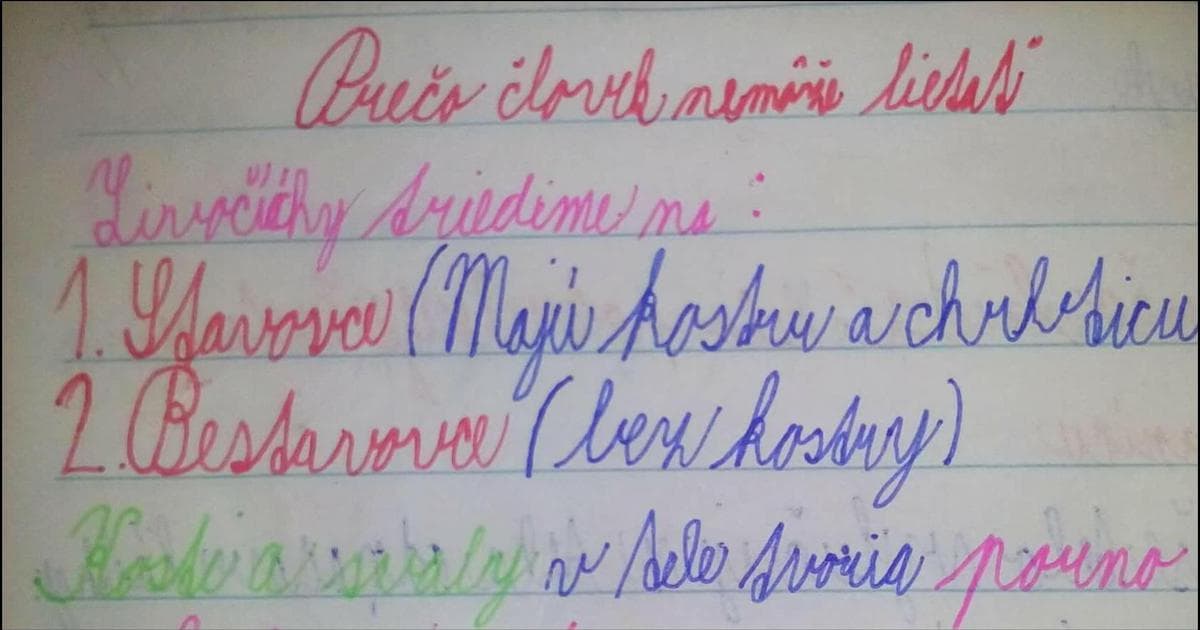 Prečo človek nemôže lietať
Živočíchy triedime na :
1. Stavovce (Majú kostru a chrbticu
2. Bestavovce (bez kostry)
Kosti a svaly v tele tvoria pouno